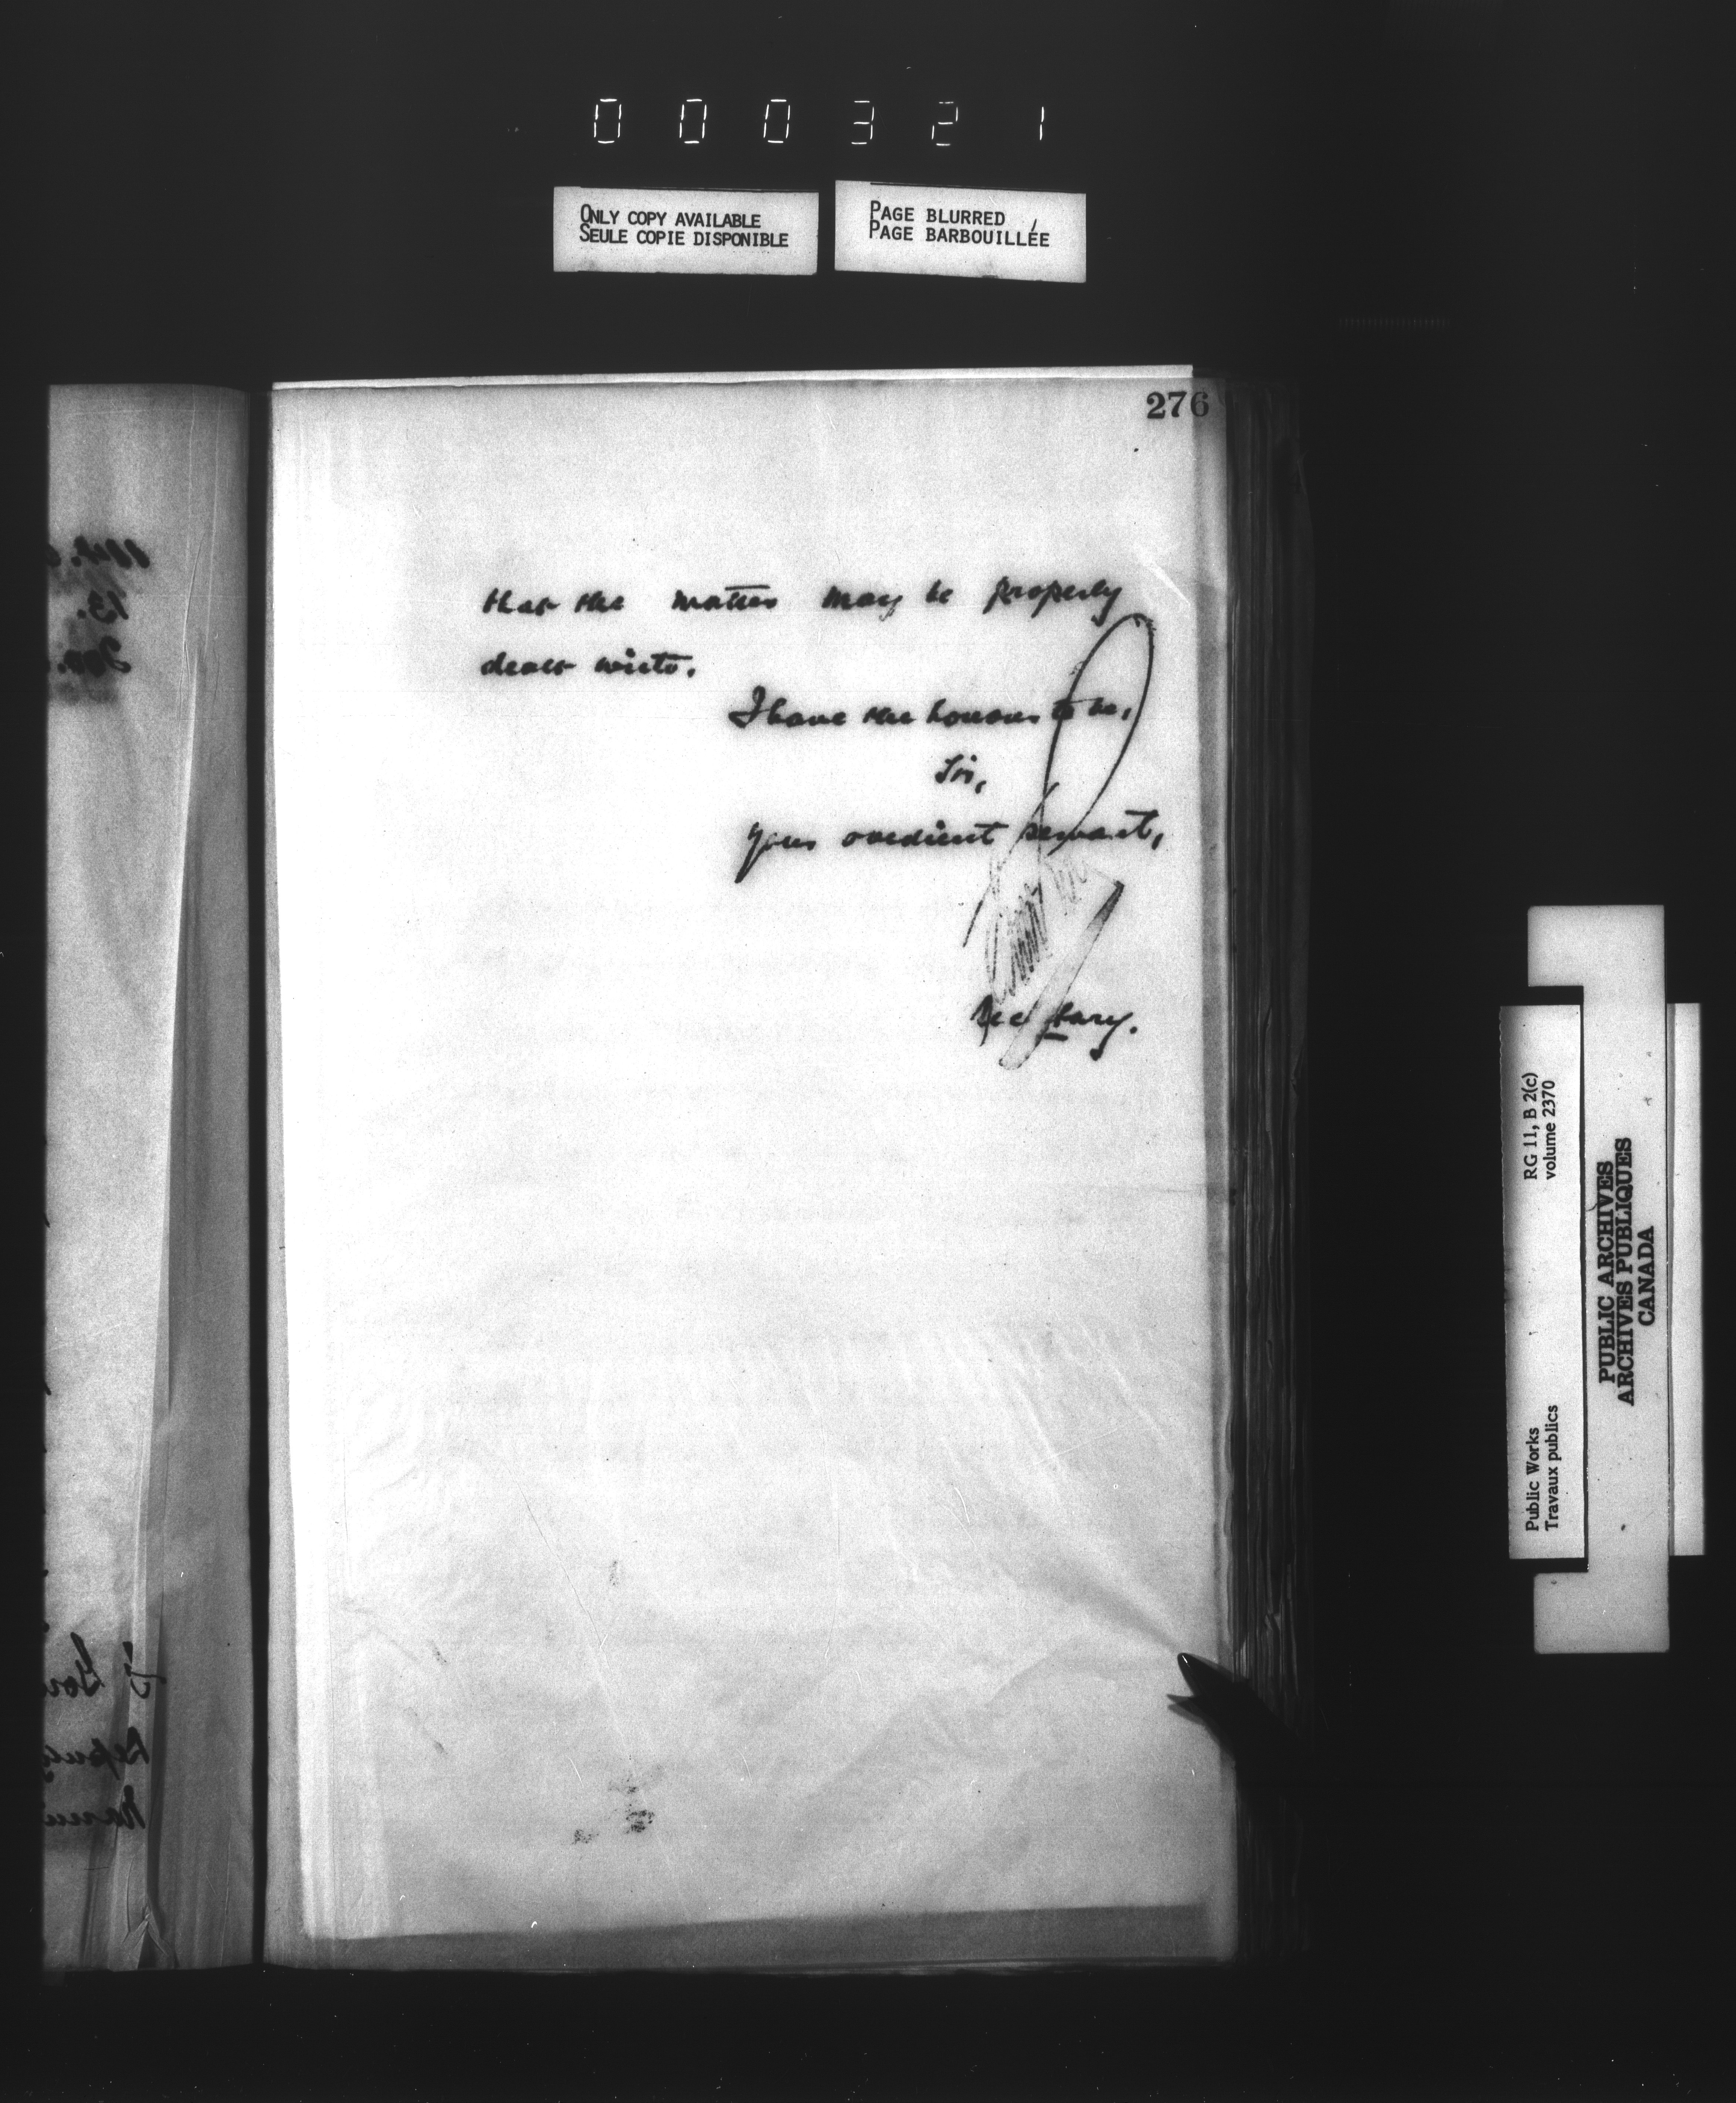 000321
ONLY COPY AVAILABLE
SEULE COPIE DISPONIBLE
PAGE BLURRED
PAGE BARBOUILLÉE
276
that the matter may be properly
dealt with.
I have the honour to be,
Sir,
Your obedient servant,
Secretary.
Public Works
Travaux publics
RG 11, B 2(c)
volume 2370
PUBLIC ARCHIVES
ARCHIVES PUBLIQUES
CANADA